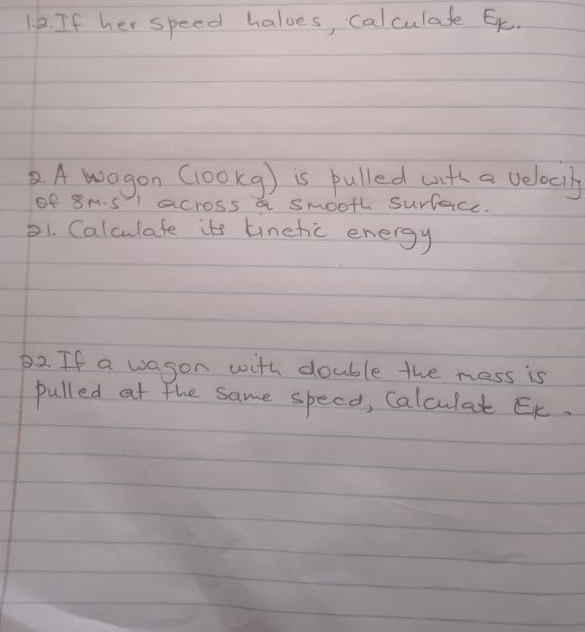 1.2. If her speed halves, calculate Ek.
2. A wagon (100kg) is pulled with a velocity
of 8m.s⁻¹ across a smooth surface.
21. Calculate its kinetic energy
22. If a wagon with double the mass is
pulled at the same speed, Calculate Ek.